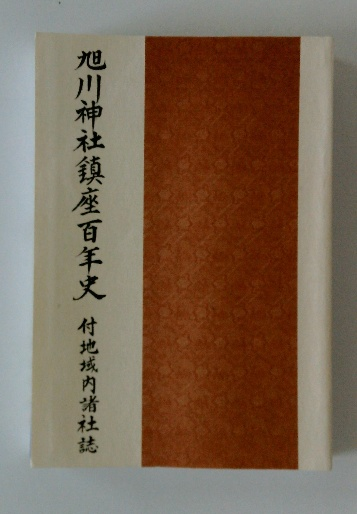 旭川神社鎮座百年史
付地域内諸社誌